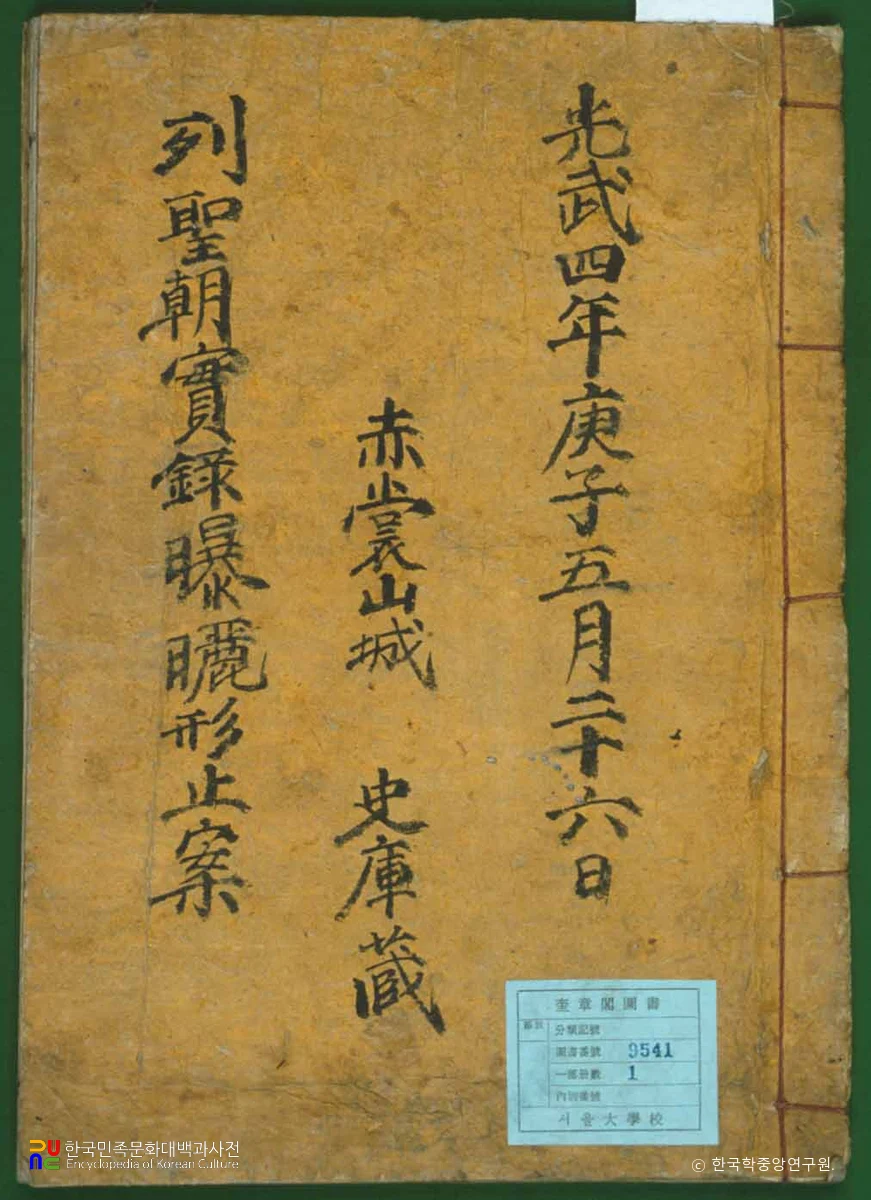 光武四年庚子五月二十六日
赤裳山城 史庫蔵
列聖朝實錄曝曬形止案
奎章閣圖書
部類
分類記號
圖書番號 9541
一部冊數 1
內別番號
서울大學校
한국민족문화대백과사전
Encyclopedia of Korean Culture
© 한국학중앙연구원